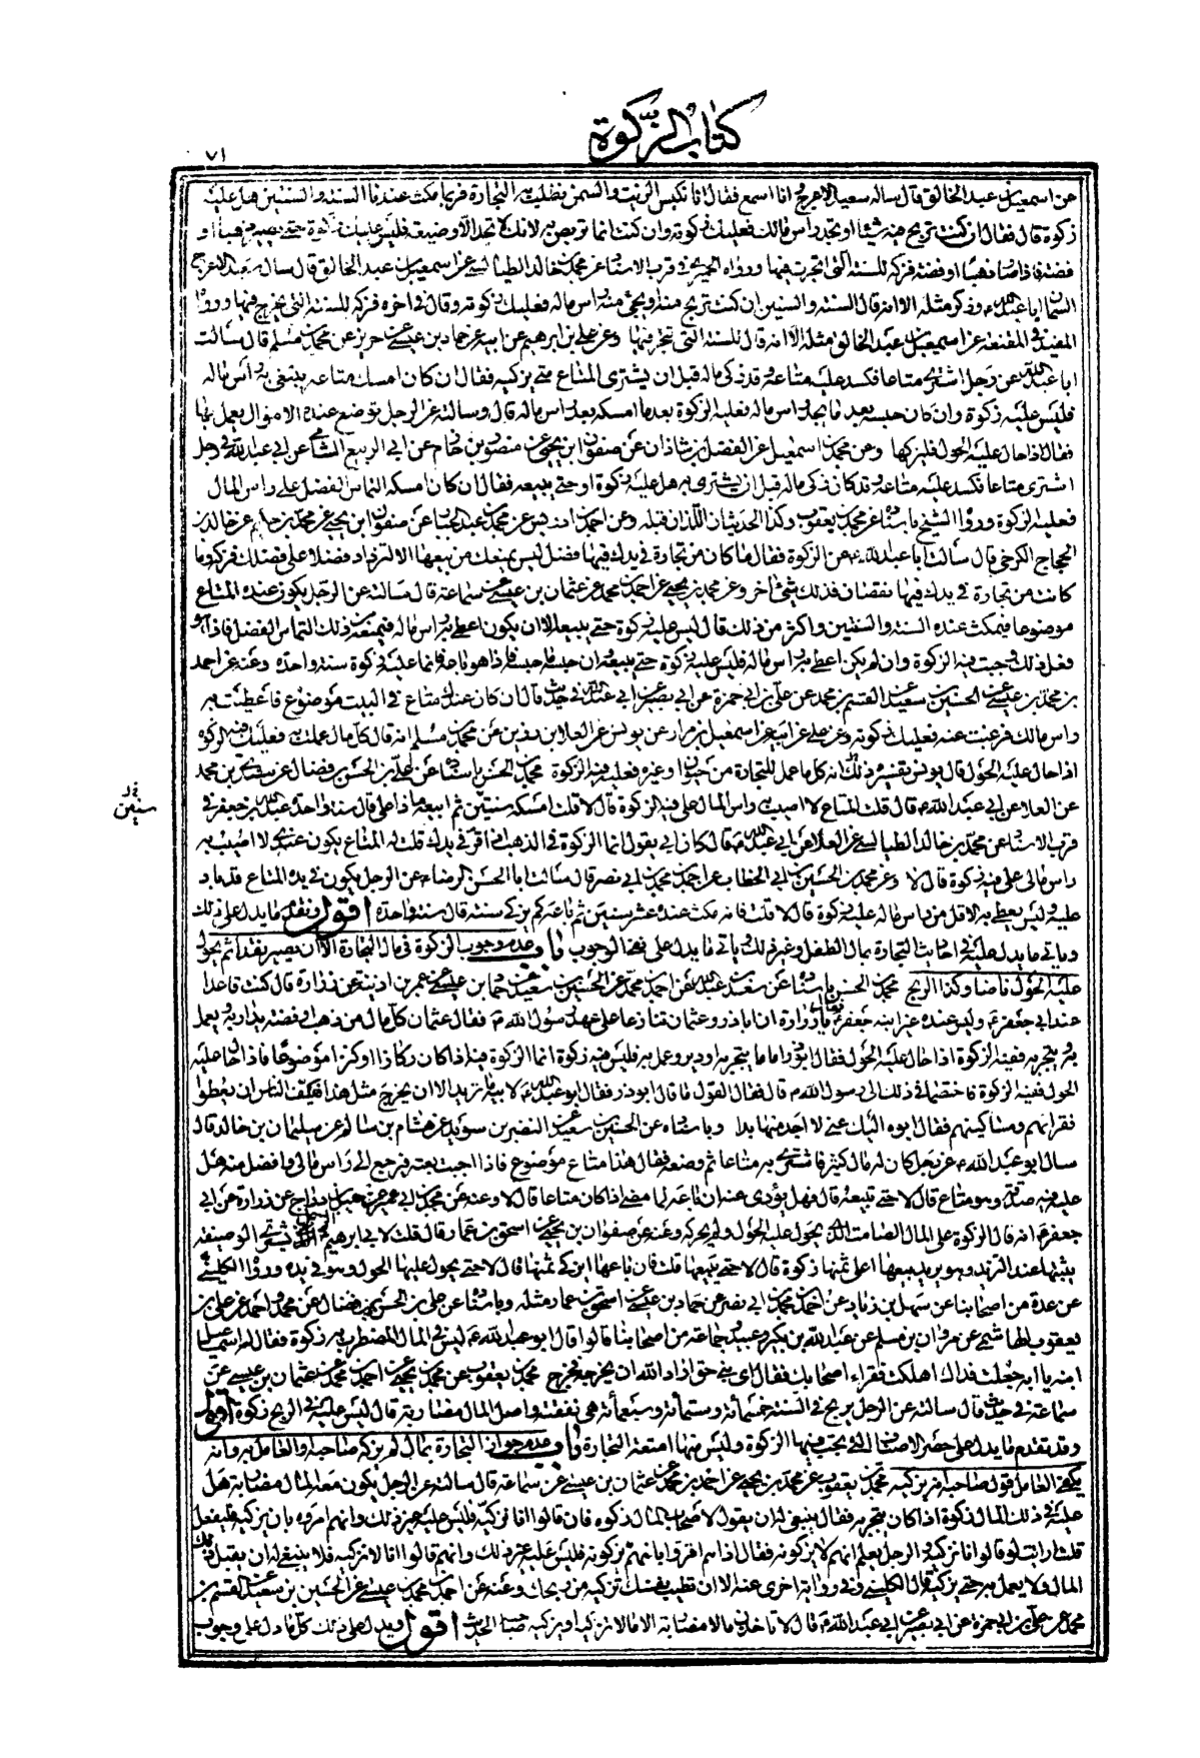 كتاب الزكوة
٧١
عن اسمعيل بن عبد الخالق قال ساله سعيد الاعرج وانا اسمع فقال انا نكبس الزيت والسمن نطلب به التجارة فربما مكث عندنا السنة والسنتين هل عليه
زكوة قال فقال ان كنت تربح فيه شيئا او تجد راس مالك فعليك زكوته وان كنت انما تربص به لانك لا تجد الا وضيعة فليس عليك زكوة حتى يصير ذهبا او
فضة فاذا صار ذهبا او فضة فزكه للسنة التى اتجرت فيها ورواه الحميرى فى قرب الاسناد عن محمد بن خالد الطيالسى عن اسمعيل بن عبد الخالق قال سال سعيد الاعرج
السمان ابا عبد الله ع وذكر مثله الا انه قال السنة والسنين ان كنت تربح منه او يجئ منه راس ماله فعليك زكوته وقال فى اخره فزكه للسنة التى يخرج فيها وروا
المفيد فى المقنعة عن اسمعيل بن عبد الخالق مثله الا انه قال للسنة التى تتجر فيها وعن على بن ابرهيم عن ابيه عن حماد بن عيسى عن حريز عن محمد بن مسلم قال سألت
ابا عبد الله عن رجل اشترى متاعا فكسد عليه متاعه وقد زكى ماله قبل ان يشترى المتاع متى يزكيه فقال ان كان امسك متاعه يبتغى به راس ماله
فليس عليه زكوة وان كان حبسه بعد ما يجد راس ماله فعليه الزكوة بعد ما امسكه بعد راس ماله قال وسالته عن الرجل توضع عنده الاموال يعمل بها
فقال اذا حال عليه الحول فليزكها وعن محمد بن اسمعيل عن الفضل بن شاذان عن صفوان بن يحيى عن منصور بن حازم عن ابى الربيع الشامى عن ابى عبد الله فى رجل
اشترى متاعا فكسد عليه متاعه وقد كان زكى ماله قبل ان يشترى به هل عليه زكوة او حتى يبيعه فقال ان كان امسكه التماس الفضل على راس المال
فعليه الزكوة وروا الشيخ باسناده عن محمد بن يعقوب وكذا الحديثان اللذان قبله وعن احمد بن ادريس عن محمد بن عبد الجبار عن صفوان بن يحيى عن محمد بن حكيم عن خالد بن
الحجاج الكرخى قال سألت ابا عبد الله ع عن الزكوة فقال ما كان من تجارة فى يدك فيها فضل ليس يمنعك من بيعها الا لتزداد فضلا على فضلك فزكه وما
كانت من تجارة فى يدك فيها نقصان فذلك شئ اخر وعن محمد بن يحيى عن احمد بن محمد عن عثمان بن عيسى عن سماعة قال سالته عن الرجل يكون عنده المتاع
موضوعا فيمكث عنده السنة والسنتين واكثر من ذلك قال ليس عليه زكوة حتى يبيعه الا ان يكون اعطى به راس ماله فيمنعه من ذلك التماس الفضل فاذا هو
فعل ذلك وجبت فيه الزكوة وان لم يكن اعطى به راس ماله فليس عليه زكوة حتى يبيعه وان حبسه ما حبسه فاذا هو باعه فانما عليه زكوة سنة واحدة وعنه عن احمد
بن محمد بن عيسى عن الحسين بن سعيد عن القسم بن محمد عن على بن ابى حمزة عن ابى بصير عن ابى عبد الله فى حديث قال ان كان عندك متاع فى البيت موضوع فاعطيت به
راس مالك فرغبت عنه فعليك زكوته وعن على عن ابيه عن اسمعيل بن مرار عن يونس عن العلا بن رزين عن محمد بن مسلم انه قال كل مال عملت به فعليك فيه الزكوة
اذا حال عليه الحول قال يونس تفسير ذلك انه كلما عمل للتجارة من حيوان وغيره فعليه فيه الزكوة محمد بن الحسن باسناده عن على بن الحسن بن فضال عن سندى بن محمد
عن العلا عن ابى عبد الله ع قال قلت المتاع لا اصيب به راس المال على فيه الزكوة قال لا قلت امسكه سنتين ثم ابيعه ماذا على قال سنة واحدة عبد الله بن جعفر فى
سنتين
قرب الاسناد عن محمد بن خالد الطيالسى عن العلا عن ابى عبد الله ع قال كان ابى يقول انما الزكوة فى الذهب اذا قر فى يدك قلت له المتاع يكون عندى لا اصيب به
راس مالى على فيه زكوة قال لا وعن محمد بن الحسين بن ابى الخطاب عن احمد بن محمد بن ابى نصر قال سألت ابا الحسن الرضا ع عن الرجل يكون فى يده المتاع قد بار
عليه وليس يعطى به الا اقل من راس ماله عليه زكوة قال لا قلت فانه مكث عنده عشر سنين ثم باعه كم يزكى سنة قال سنة واحدة اقول وتقدم ما يدل على ذلك
وياتى ما يدل عليه فى احاديث التجارة بمال الطفل وغير ذلك وياتى ما يدل على نفى الوجوب باب عدم وجوب الزكوة فى مال التجارة الا ان يصير نقدا ثم يحول
عليه الحول فصاعدا وكذا الربح محمد بن الحسن باسناده عن سعد بن عبد الله عن احمد بن محمد عن الحسين بن سعيد عن حماد بن عيسى عن عمر بن اذينة عن زرارة قال كنت قاعدا
عند ابى جعفر ع وليس عنده غير ابنه جعفر فقال يا زرارة ان ابا ذر وعثمان تنازعا على عهد رسول الله ص فقال عثمان كل مال من ذهب او فضة يدار به ويعمل
به ويتجر به ففيه الزكوة اذا حال عليه الحول فقال ابو ذر اما ما يتجر به او دير وعمل به فليس فيه زكوة انما الزكوة فيه اذا كان ركازا او كنزا موضوعا فاذا حال عليه
الحول ففيه الزكوة فاختصما فى ذلك الى رسول الله ص قال فقال القول ما قال ابو ذر فقال ابو عبد الله ع لابيه ما تريد الا ان يخرج مثل هذا فيكف الناس ان يعطوا
فقرائهم ومساكينهم فقال ابوه اليك عنى لا اجد منها بدا وباسناده عن الحسين بن سعيد عن النضر بن سويد عن هشام بن سالم عن سليمان بن خالد قال
سال ابو عبد الله ع عن رجل كان له مال كثير فاشترى به متاعا ثم وضعه فقال هذا متاع موضوع فاذا احببت بعته فيرجع الى راس مالى وافضل منه هل
عليه فيه صدقة وهو متاع قال لا حتى تبيعه قال فهل يؤدى عنه ان باعه لما مضى اذا كان متاعا قال لا وعنه عن محمد بن ابى عمير عن جميل بن دراج عن زرارة عن ابى
جعفر ع انه قال الزكوة على المال الصامت الذى يحول عليه الحول ولم يحركه وعنه عن صفوان بن يحيى عن اسحق بن عمار قال قلت لابى ابرهيم الرجل يشترى الوصيفة
يثبتها عنده لتزيد وهو يريد بيعها اعلى ثمنها زكوة قال لا حتى يبيعها قلت فان باعها ايزكى ثمنها قال لا حتى يحول عليها الحول وهو فى يده وروا الكلينى
عن عدة من اصحابنا عن سهل بن زياد عن احمد بن محمد بن ابى نصر عن حماد بن عيسى عن اسحق بن عمار مثله وباسناده عن على بن الحسن بن فضال عن محمد واحمد عن على بن
يعقوب الهاشمى عن مروان بن مسلم عن عبد الله بن بكير وعبيد وجماعة من اصحابنا قالوا قال ابو عبد الله ع ليس فى المال المضطرب به زكوة فقال له اسمعيل
ابنه يا ابه جعلت فداك اهلكت فقراء اصحابك فقال اى بنى حق اراد الله ان يخرجه فخرج محمد بن يعقوب عن محمد بن يحيى عن احمد بن محمد عن عثمان بن عيسى عن
سماعة فى حديث قال سالته عن الرجل يربح فى السنة خمسمائة وستمائة وسبعمائة هى نفقته واصل المال مضاربة قال ليس عليه فى الربح زكوة اقول
وقد تقدم ما يدل على حصر الاصناف التى يجب فيها الزكوة وليس منها امتعة التجارة باب عدم جواز التجارة بمال لم يزكه صاحبه والعامل به وانه
يكفى العامل قول صاحبه انه يزكيه محمد بن يعقوب عن محمد بن يحيى عن احمد بن محمد عن عثمان بن عيسى عن سماعة قال سالته عن الرجل يكون معه المال مضاربة هل
عليه فى ذلك المال زكوة اذا كان يتجر به فقال ينبغى له ان يقول لاصحاب المال زكوه فان قالوا انا نزكيه فليس عليه غير ذلك وانهم امروه بان يزكيه فليفعل
قلت ارايت لو قالوا انا نزكيه والرجل يعلم انهم لا يزكونه فقال اذا هم اقروا بانهم يزكونه فليس عليه غير ذلك وانهم قالوا انا لا نزكيه فلا ينبغى له ان يقبل ذلك
المال ولا يعمل به حتى يزكيه قال الكلينى وفى رواية اخرى عنه الا ان تطيب نفسك ان تزكيه من ربحك وعنه عن احمد بن محمد بن عيسى عن الحسين بن سعيد عن القسم بن
محمد عن على بن ابى حمزة عن ابى بصير عن ابى عبد الله ع قال لا تاخذن مالا مضاربة الا مالا تزكيه او يزكيه صاحبه الحديث اقول ويدل على ذلك كل ما دل على وجوب